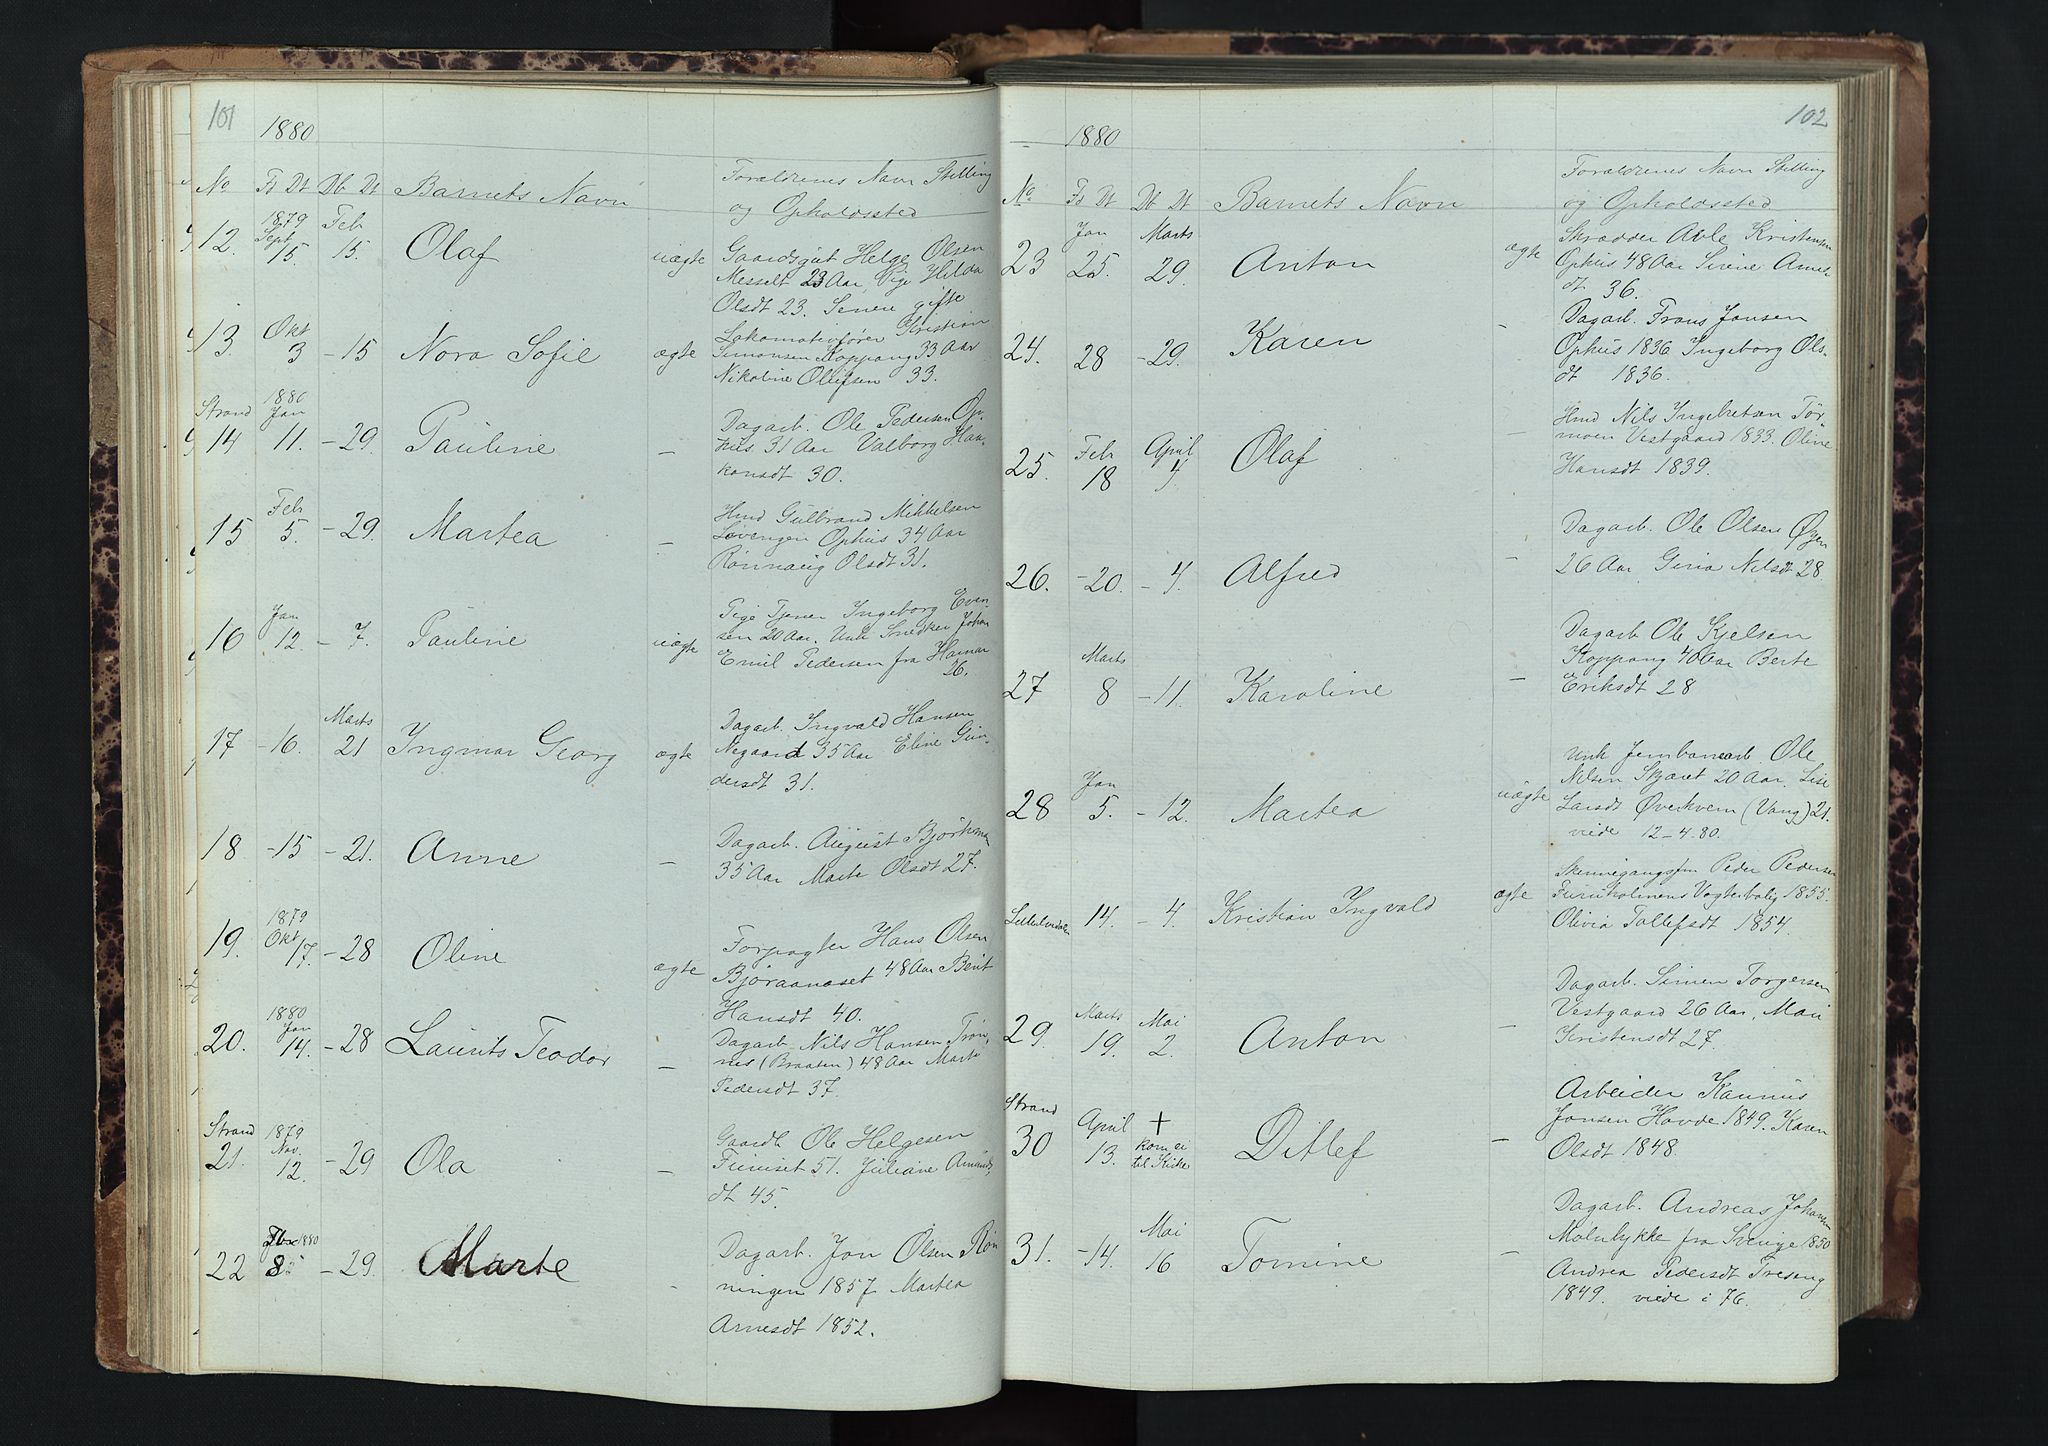 101
1880
No Fd Dt Db Dt Barnets Navn Forældrenes Navn Stilling
og Opholdssted
12. 1879 Sept 15. Feb 15. Olaf uægte Gaardsgut Helge Olsen
Messelt 23 Aar, Pige Hilda
Olsdt 23. Senere gifte
13. Okt 3 - 15 Nora Sofie ægte Lokomotivfører Kristian
Simonsen Koppang 33 Aar
Nikoline Olufsen 33.
Strand
14 1880 Jan 11. - 29. Pauline - Dagarb. Ole Pedersen Op-
hus 31 Aar Valborg Haa-
konsdt 30.
15 Feb 5. - 29. Martea - Hmd Gulbrand Mikkelsen
Løvengen Ophus 34 Aar
Rønnaug Olsdt 31.
16 Jan 12. - 7. Pauline uægte Pige Tjener Ingeborg Even-
sen 20 Aar. Unk Snedker Johan
Emil Pedersen fra Hamar
26.
17 - 16. Marts 21 Ingmar Georg ægte Dagarb Ingvald Hansen
Negaard 35 Aar Eline Gun-
dersdt 31.
18 - 15 - 21. Anne - Dagarb. August Bjørkman
35 Aar Marte Olsdt 27.
19. 1879 Okt 17. - 28 Oline ægte Forpagter Hans Olsen
Bjøraanaset 48 Aar Berit
Hansdt 40.
20. 1880 Jan 14. - 28 Laurits Teodor - Dagarb Nils Hansen Trøn-
nes (Braaten) 48 Aar Marte
Pedersdt 37.
Strand
21. 1879 Nov. 12. - 29 Ola - Gaardb Ole Helgesen
Furuset 51. Juliane Amunds
dt 45.
22 1880 8 - 29. Marte - Dagarb. Jon Olsen Røn
ningen 1857 Martea
Arnesdt 1852.
102
1880
No Fd Dt Db Dt Barnets Navn Forældrenes Navn Stilling
og Opholdssted
23 Jan 25. Marts 29. Anton ægte Skrædder Atle Kristensen
Ophus 48 Aar Sirine Arnes
dt 36.
24. 28 - 29. Karen - Dagarb. Frans Jansen
Ophus 1836 Ingeborg Ols-
dt 1836.
25. Feb 18 April 4 Olaf - Hmd Nils Ingebretsen Tør
moen Vestgaard 1833. Oline
Hansdt 1839.
26. - 20. - 4. Alfred - Dagarb. Ole Olsen Øyen
26 Aar Gina Nilsdt 28.
27 Marts 8 - 11. Karoline - Dagarb Ole Kjelsen
Koppang 40 Aar Berte
Eriksdt 28
28 Jan 5. - 12. Martea uægte Unk Jernbanearb Ole
Nilsen Skjæret 20 Aar. Lise
Larsdt Øverkvern (Vang) 21.
viede 12-4.80.
14. - 4. Kristian Ingvald ægte Skinnegangsfm Peder Pedersen
Furuholmens Vogterbolig 1855.
Olivia Tollefsdt 1854.
29. Marts 19. Mai 2. Anton - Dagarb. Simen Torgersen
Vestgaard 26 Aar, Mari
Kristensdt 27.
Strand
30 April 13. + kom ei til Kirke Ditlef - Arbeider Rasmus
Jonsen Hovde 1849. Karen
Olsdt 1848.
31. - 14. Mai 16 Tomine - Dagarb. Andreas Johansn
Mølnlykke fra Sverige 1850
Andrea Pedersdt Treseng
1849. viede i 76.